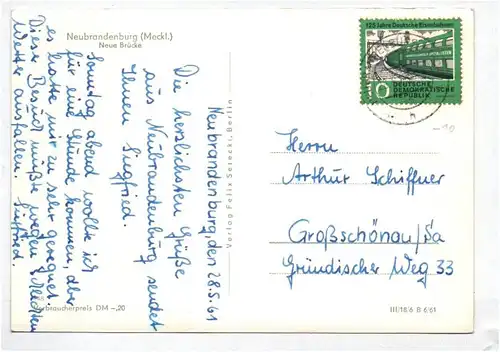 Neubrandenburg (Meckl.)
Neue Brücke
Neubrandenburg, den 28.5.61
Die herzlichsten Grüße
aus Neubrandenburg sendet
Ihnen Siegfried.
Sonntag abend wollte ich
für eine Stunde kommen, aber
es hatte mir zu sehr geregnet.
Dieser Besuch mußte wegen schlechten
Wetter ausfallen. Siegfried.
Verbraucherpreis DM -,20
Verlag Felix Setecki, Berlin
125 Jahre Deutsche Eisenbahnen
10
DEUTSCHE
DEMOKRATISCHE
REPUBLIK
h
-10
Herrn
Arthur Schiffner
Großschönau/Sa
Gründischer Weg 33
III/18/6 B 6/61